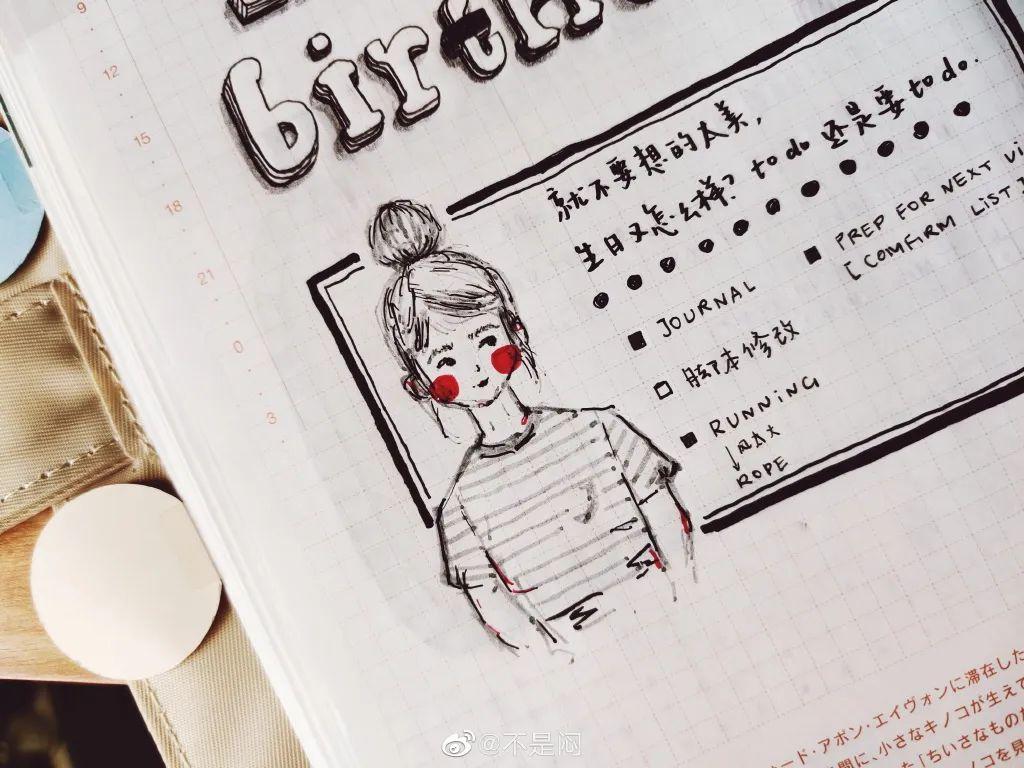 birth
就不要想的太美,
生日又怎么样? to do 还是要 to do.
JOURNAL
脚本修改
RUNNiNG
↓ 风太大
ROPE
PREP FOR NEXT Vi
[ COMFIRM LiST ]
9
12
15
18
21
0
3
ード・アポン・エイヴォンに滞在した
間に、小さなキノコが生えて
た「ちいさなものが
ノコを見
@不是闷